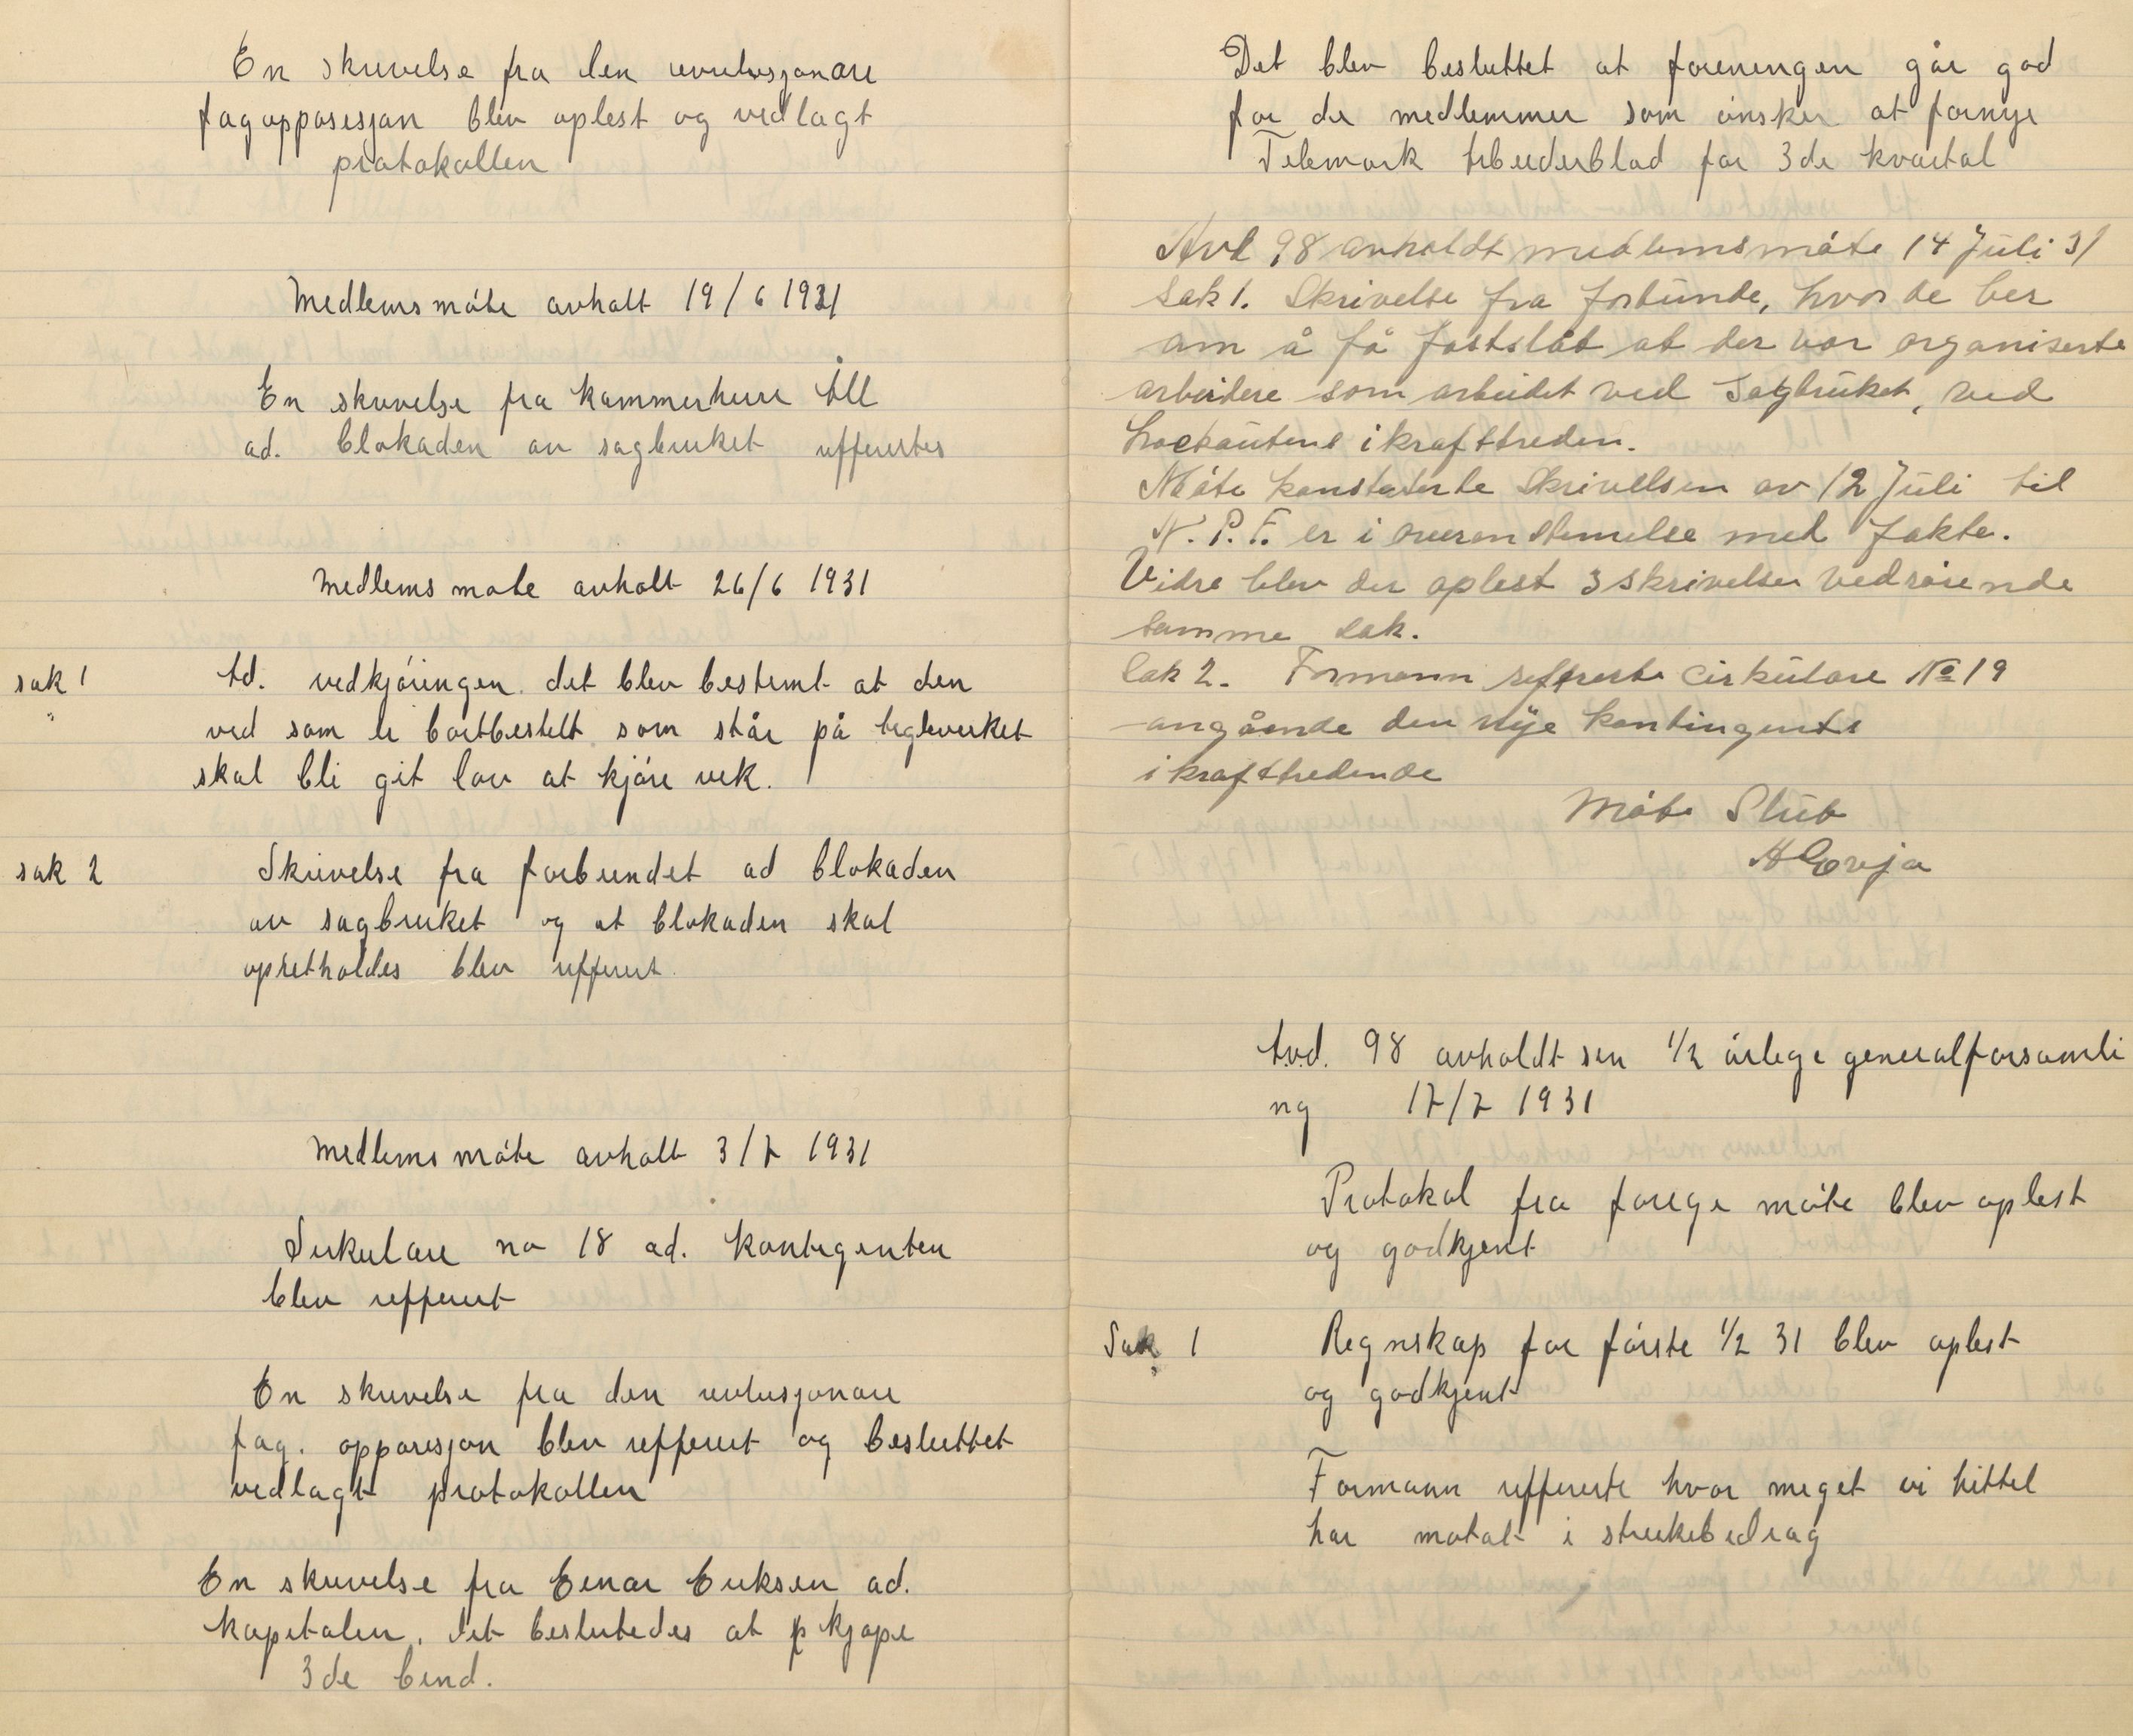 En skrivelse fra den revulusjonære
fagopposisjon blev oplest og vedlagt
protokollen
Medlemsmöte avholt 19/6 1931
En skrivelse fra Kammerherre Åll
ad. blokaden av sagbruket refferertes
Medlemsmöte avholt 26/6 1931
sak 1
Ad. vedkjöringen. det blev bestemt at den
ved som er bortbestelt som står på teglverket
skal bli git lov at kjöre vek.
sak 2
Skrivelse fra forbundet ad blokaden
av sagbruket og at blokaden skal
opretholdes blev refferert.
Medlemsmöte avholt 3/7 1931
Sirkulære no 18 ad. kontigenten
blev refferert
En skrivelse fra den revlusjonære
fag. opposisjon blev refferert og besluttet
vedlagt protokollen
En skrivelse fra Einar Eriksen ad.
Kapitalen. det beslutedes at kjøpe
3de bind.
Det blev besluttet at foreningen går god
for de medlemmer som önsker at fornye
Telemark Arbeiderblad for 3de kvartal
Avd 98 avholdt medlemsmöte 14 Juli 31
Sak 1. Skrivelse fra forbunde, hvor de ber
om å få fastslåt at der var organiserte
arbeidere som arbeidet ved Sagbruket, ved
Lockoutens ikrafttreden.
Möte konstaterte Skrivelsen av 12 Juli til
N. P. F. er i overenstemelse med fakta.
Vidre blev der oplest 3 skrivelser vedrörende
samme sak.
Sak 2. Formann reffrerte Cirkulære No 19
angående den nye kontingents
ikrafttredende
Möte Slut
H Corja
Avd. 98 avholdt sin 1/2 årlege generalforsamli
ng 17/7 1931
Protokol fra forege möte blev oplest
og godkjent
Sak 1
Regnskap for förste 1/2 31 blev oplest
og godkjent
Formann reffererte hvor meget vi hittel
har motat i streikebedrag